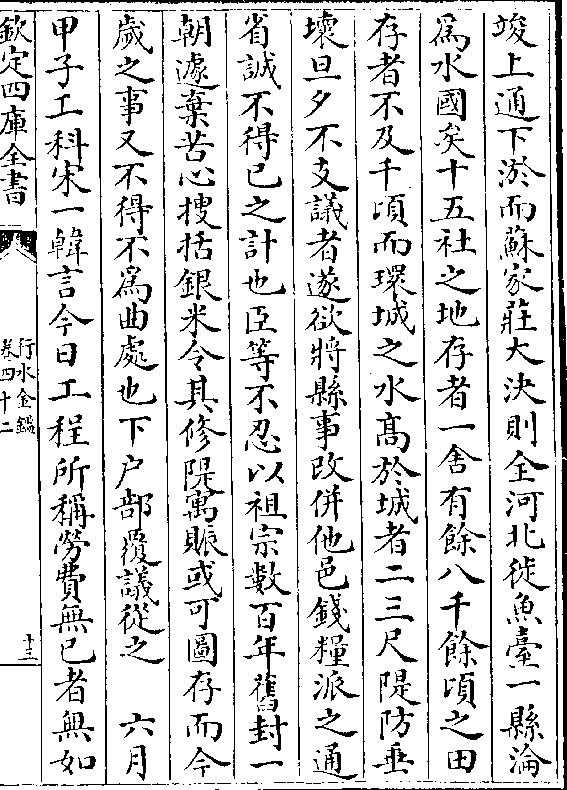 竣上通下淤而蘇家莊大決則全河北徙魚臺一縣淪
為水國矣十五社之地存者一舍有餘八千餘頃之田
存者不及千頃而環城之水髙於城者二三尺隄防垂
壊旦夕不支議者遂欲將縣事改併他邑錢糧派之通
省誠不得已之計也臣等不忍以祖宗數百年舊封一
朝遽棄苦心搜括銀米令其修隄寓賑或可圖存而今
歲之事又不得不為曲處也下户部覆議從之　六月
甲子工科宋一韓言今日工程所稱勞費無已者無如
欽定四庫全書
行水金鑑
卷四十二
十三